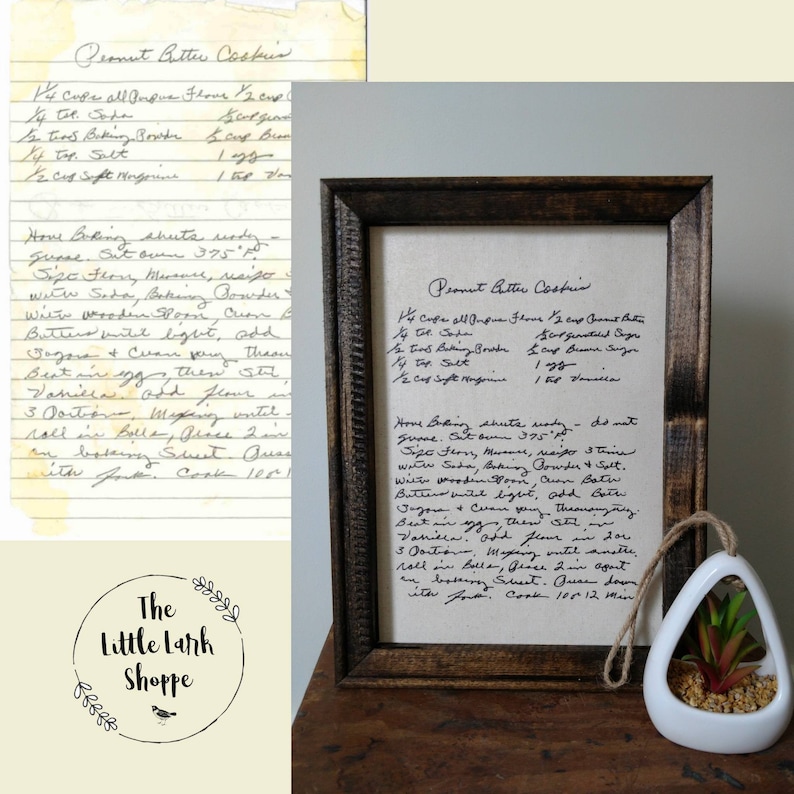 Peanut Butter Cookies
1 1/4 cups all Purpus Flour 1/2 cup
1/4 tsp. Soda 1/2 cup
1/2 teas Baking Powder 1/2 cup Brow
1/4 tsp. Salt 1 egg
1/2 cup Soft Margarine 1 tsp Van
Have Baking sheets ready -
grease. Set oven 375°F.
Sift Flour, Measure, resift 3
with Soda, Baking Powder &
With wooden Spoon, Cream B
Butters until light, add
Sugars & Cream very thoroug
Beat in egg, then Stir
Vanilla. add flour in
3 Portions, Mixing until
roll in Balls, Place 2 in
on baking Sheet. Press
with fork. Cook 10 or 1
Peanut Butter Cookies
1 1/4 cups all Purpus Flour 1/2 cup Peanut Butter
1/4 tsp. Soda 1/2 cup granulated Sugar
1/2 teas Baking Powder 1/2 cup Brown Sugar
1/4 tsp. Salt 1 egg
1/2 cup Soft Margarine 1 tsp Vanilla
Have Baking sheets ready - do not
grease. Set oven 375°F.
Sift Flour, Measure, resift 3 times
with Soda, Baking Powder & Salt.
With wooden Spoon, Cream Both
Butters until light, add Both
Sugars & Cream very thoroughly.
Beat in egg, then Stir in
Vanilla. add flour in 2 or
3 Portions, Mixing until smooth.
roll in Balls, Place 2 in apart
on baking Sheet. Press down
with fork. Cook 10 or 12 Min
The
Little Lark
Shoppe